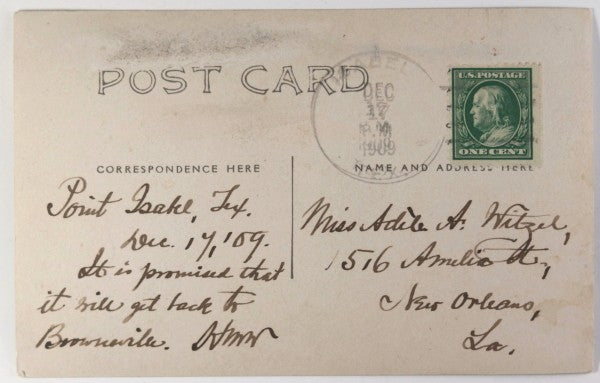 POST CARD
ISABEL
DEC
17
P.M
1909
TEX.
U.S. POSTAGE
ONE CENT
CORRESPONDENCE HERE
Point Isabel, Tex.
Dec. 17, '09.
It is promised that
it will get back to
Brownsville. HWW
NAME AND ADDRESS HERE
Miss Adele A. Witzel,
1516 Amelia St.,
New Orleans,
La.